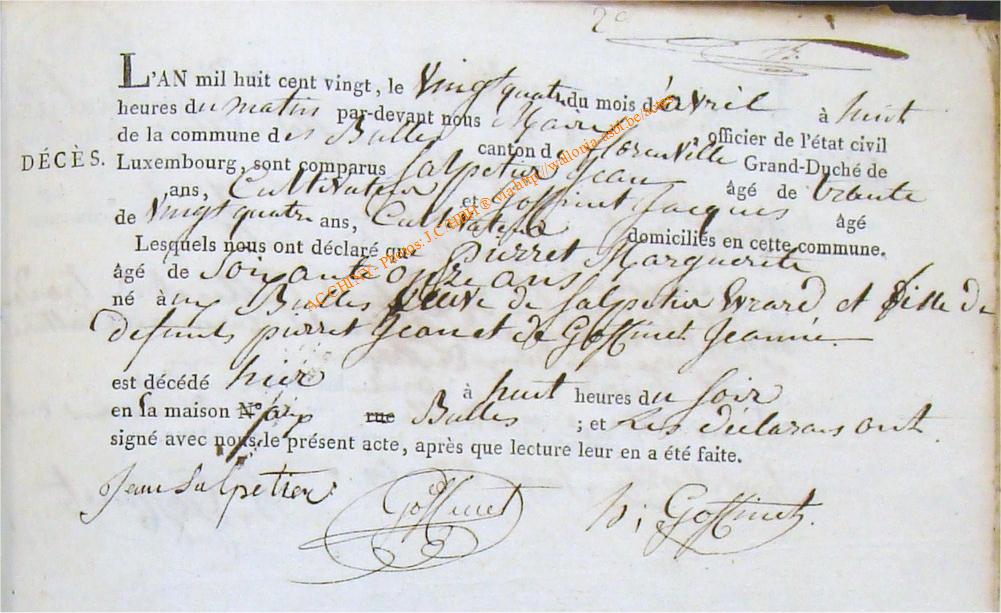 2e
L'AN mil huit cent vingt, le Vingt quatre du mois d'avril à huit
heures du matin par-devant nous Maire, officier de l'état civil
de la commune des Bulles canton de florenville Grand-Duché de
DÉCÈS. Luxembourg, sont comparus Salpetier Jean âgé de trante
ans, Cultivateur et Goffinet Jacques âgé
de Vingt quatre ans, Cultivateur domiciliés en cette commune.
Lesquels nous ont déclaré que Pierret Marguerite
âgé de Soixante onze ans
né à Bulles Veuve de Salpetier Evrard, et fille de
defunts pierret Jean et de Goffinet Jeanne
est décédé hier à huit heures du soir
en sa maison N° rue Bulles ; et Les déclarans ont
signé avec nous le présent acte, après que lecture leur en a été faite.
Jean Salpetier Goffinet Goffinet
AC CHINY - Photos: J.C. HBH ® via http://wallonia-asbl.be/